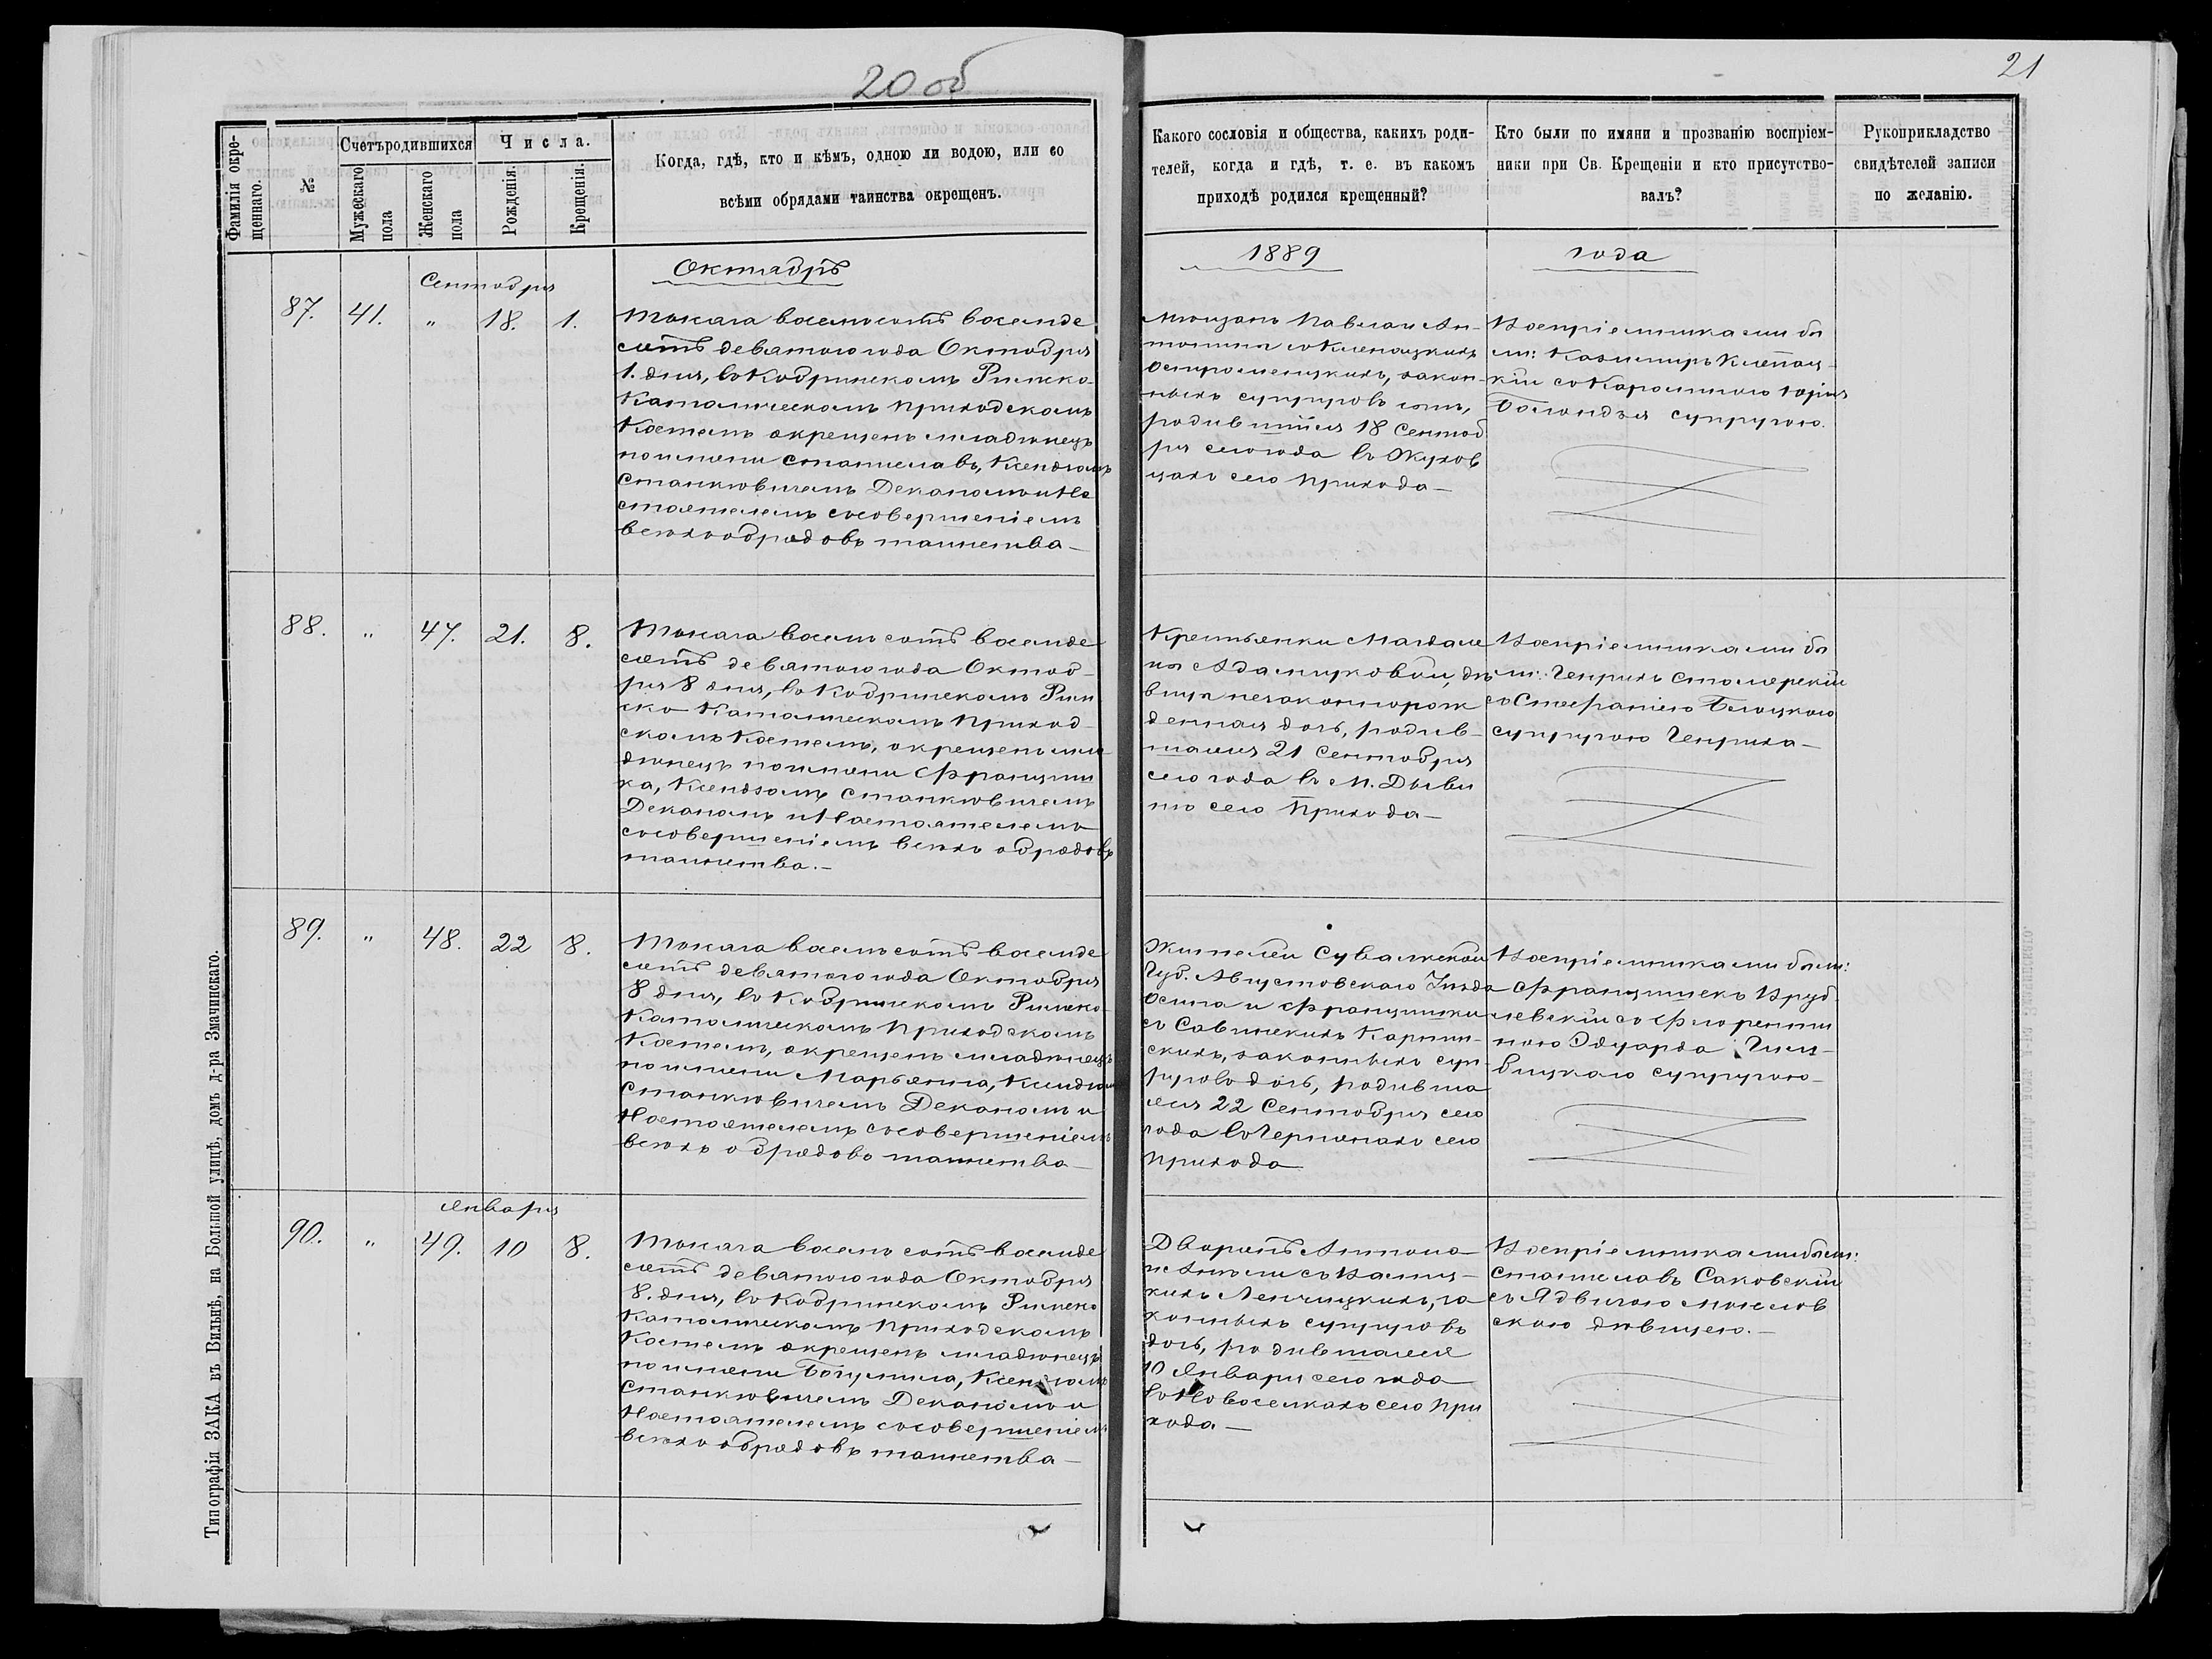 20 об
21
Фамилія окре-
щеннаго.
№
Счетъ родившихся
Мужескаго
пола
Женскаго
пола
Числа.
Рожденія.
Крещенія.
Когда, гдѣ, кто и кѣмъ, одною ли водою, или со
всѣми обрядами таинства окрещенъ.
Какого сословія и общества, какихъ роди-
телей, когда и гдѣ, т. е. въ какомъ
приходѣ родился крещенный?
Кто были по имяни и прозванію воспріем-
ники при Св. Крещеніи и кто присутство-
валъ?
Рукоприкладство
свидѣтелей записи
по желанію.
Октябрь
1889
года
Сентября
87. 41. " 18. 1.
Тысяча восемьсотъ восемде
сятъ девятого года Октября
1. дня, въ Кобринскомъ Римско-
Католическомъ Приходскомъ
Костелѣ окрещенъ младѣнецъ
по имени Станиславъ, Ксендзомъ
Станкѣвичемъ Деканомъ и На
стоятелемъ съ совершеніемъ
всѣхъ обрядовъ таинства—
Мѣщанъ Павла и Ан-
тонины съ Клепацкихъ
Остромецкихъ, закон-
ныхъ супруговъ сынъ,
родившійся 18 Сентяб
ря сего года въ Жухов
цахъ сего Прихода—
Воспріемниками бы
ли: Казимиръ Клепац-
кій съ Каролиною Юрія
супругою.
88. " 47. 21. 8.
Тысяча восемьсотъ восемде
сятъ девятого года Октяб-
ря 8 дня, въ Кобринскомъ Рим
ско Католическомъ Приход-
скомъ Костелѣ, окрещенъ мла
дѣнецъ по имени Францишка,
Ксендзомъ Станкѣвичемъ
Деканомъ и Настоятелемъ
съ совершеніемъ всѣхъ обрядовъ
таинства.—
Крестьянки Магдале
ны Адамуковой, дѣ
вицы незаконнорож
денная дочь, родив-
шаяся 21 Сентября
сего года въ М. Дыви
нѣ сего Прихода—
Воспріемниками бы
ли: Генрихъ
съ Стефаніею
супругою Генриха—
89. " 48. 22 8.
Тысяча восемьсотъ восемде
сятъ девятого года Октября
8 дня, въ Кобринскомъ Римско
Католическомъ Приходскомъ
Костелѣ, окрещенъ младѣнецъ
по имени Марьянна, Ксендзомъ
Станкѣвичемъ Деканомъ и
Настоятелемъ съ совершеніемъ
всѣхъ обрядовъ таинства—
Жителей Сувалкской
Губ. Августовскаго Уѣзда
Осипа и Францишки
съ Савинскихъ Карпин-
скихъ, законныхъ суп-
руговъ дочь, родивша
яся 22 Сентября сего
года въ сего
Прихода
Воспріемниками были:
Францишекъ Вруб
левскій съ Флоренти
ною Эдуарда
супругою—
Января
90. " 49. 10 8.
Тысяча восемьсотъ восемде
сятъ девятого года Октября
8. дня, въ Кобринскомъ Римско
Католическомъ Приходскомъ
Костелѣ окрещенъ младѣнецъ
по имени Богумила, Ксендзомъ
Станкѣвичемъ Деканомъ и
Настоятелемъ съ совершеніемъ
всѣхъ обрядовъ таинства—
Дворянъ Антона
Ленчицкихъ, за
конныхъ супруговъ
дочь, родившаяся
10 Января сего года
въ Новоселкахъ сего При
хода—
Воспріемниками были:
Станиславъ Саковскій
съ Ядвигою
скою дѣвицею.—
Типографія ЗАКА въ Вильнѣ, на Большой улицѣ, домъ д-ра Змачинскаго.